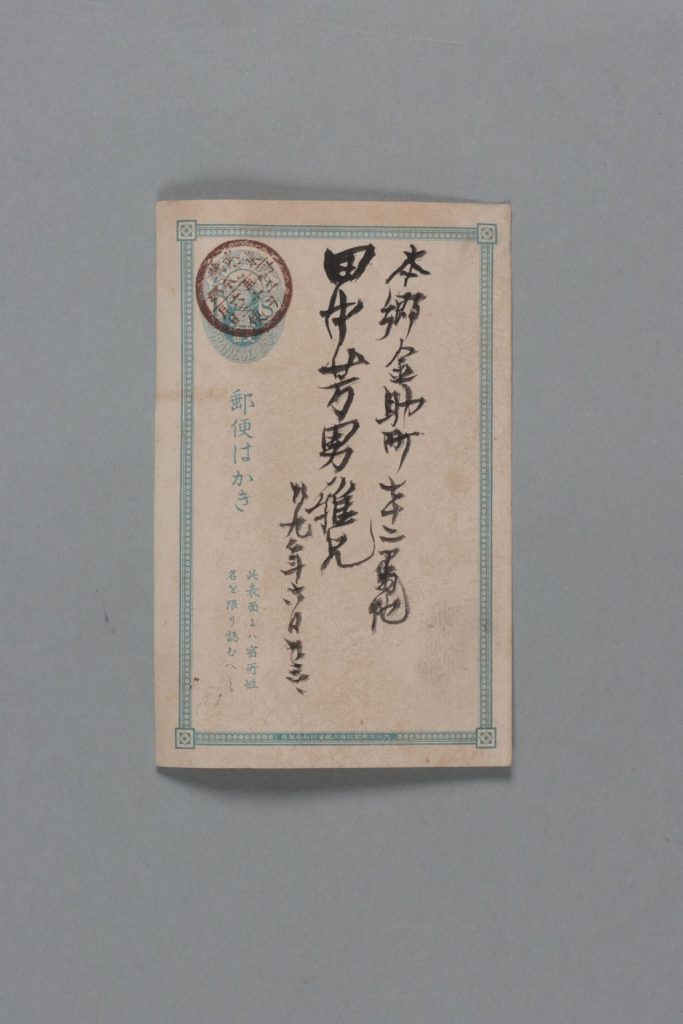 本郷金助町七十二番地
田中芳男雅兄
廿九年六月廿三
郵便はかき
此表面にハ宿所姓
名を限り認むへし
JAPANESE